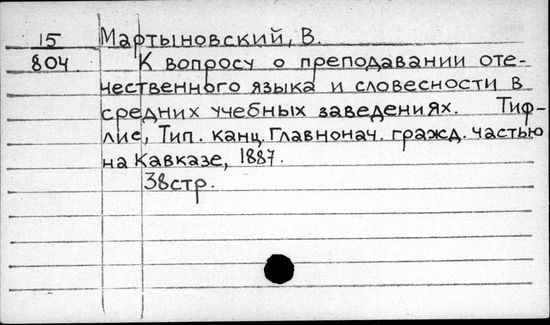 15 Мартыновский, В.
804 К вопросу о преподавании оте-
чественного языка и словесности в
средних учебных заведениях. Тиф-
лис, Тип. канц. Главнонач. гражд. частью
на Кавказе, 1887.
38стр.